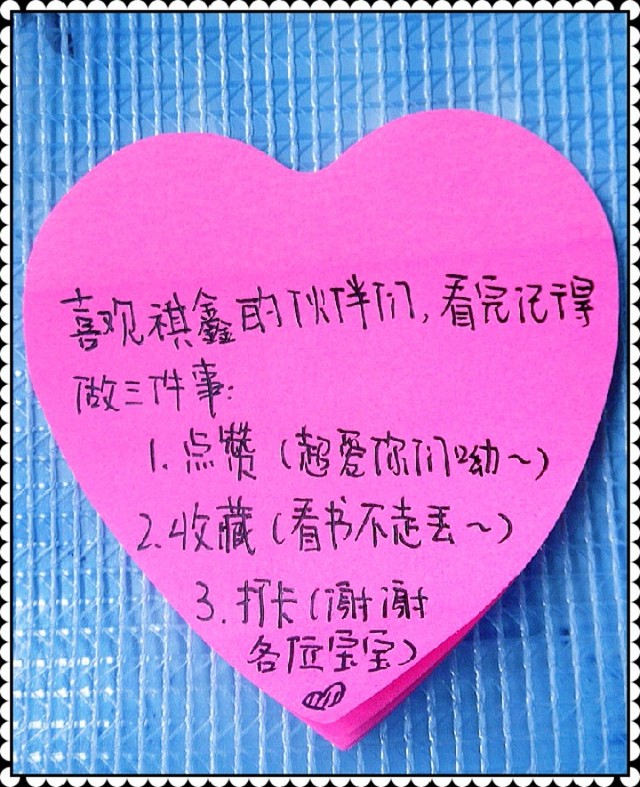 喜欢祺鑫的伙伴们,看完记得
做三件事:
1.点赞(超爱你们呦~)
2.收藏(看书不走丢~)
3.打卡(谢谢
各位宝宝)